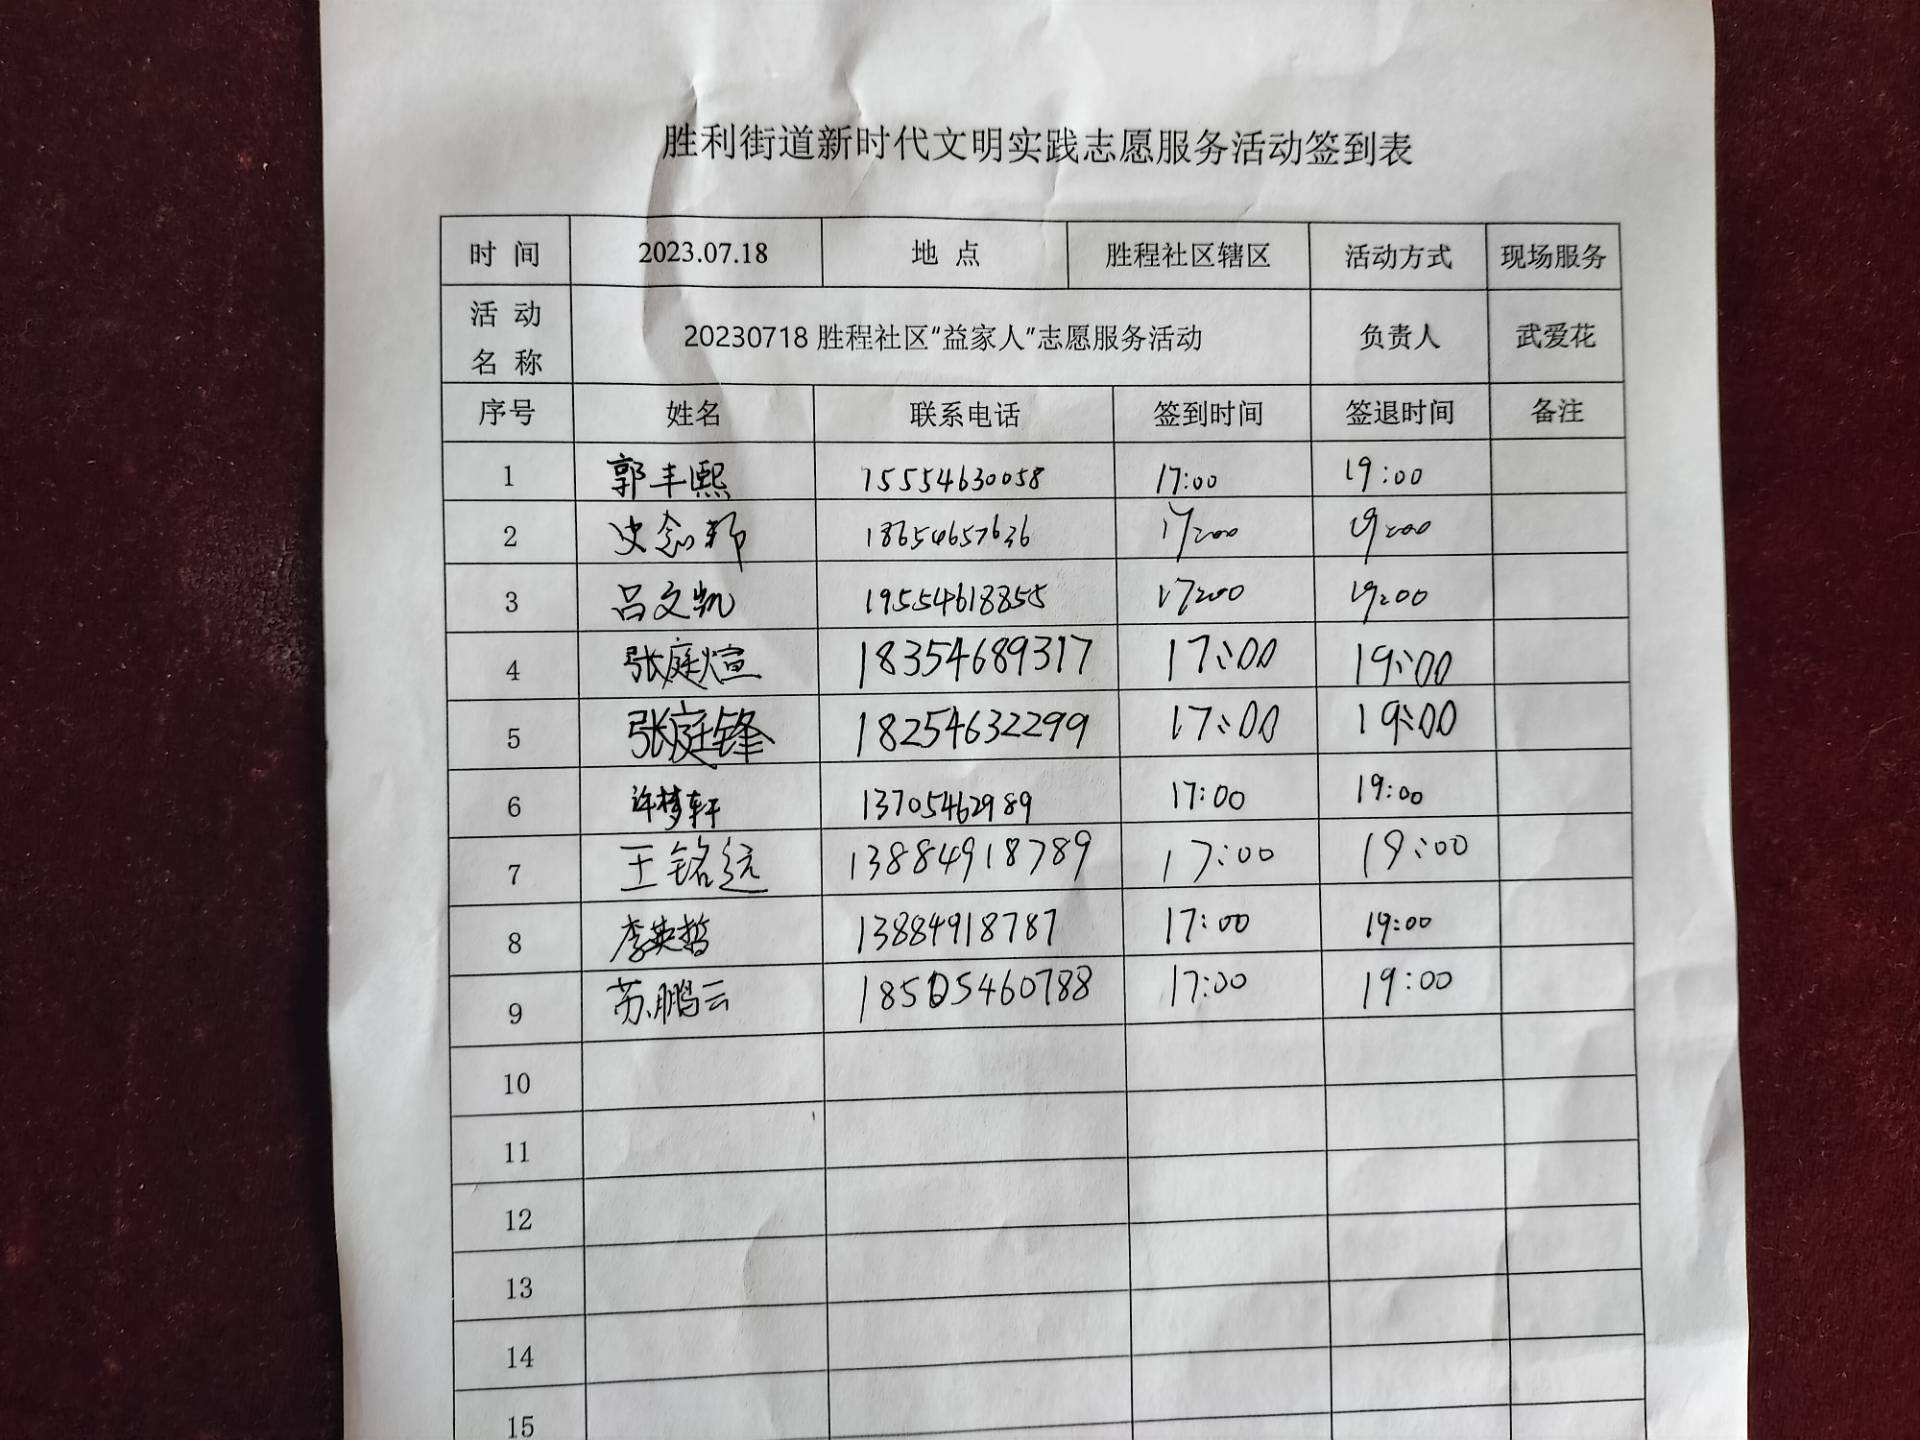 胜利街道新时代文明实践志愿服务活动签到表
时 间 2023.07.18 地 点 胜程社区辖区 活动方式 现场服务
活 动 名 称 20230718 胜程社区“益家人”志愿服务活动 负责人 武爱花
序号 姓名 联系电话 签到时间 签退时间 备注
1 郭丰熙 15554630058 17:00 19:00
2 史念 18654657636 17:00 19:00
3 吕文凯 19554618855 17:00 19:00
4 张庭煊 18354689317 17:00 19:00
5 张庭锋 18254632299 17:00 19:00
6 许梦轩 13705462989 17:00 19:00
7 王铭远 13884918789 17:00 19:00
8 李英哲 13884918787 17:00 19:00
9 苏鹏云 18505460788 17:00 19:00
10
11
12
13
14
15